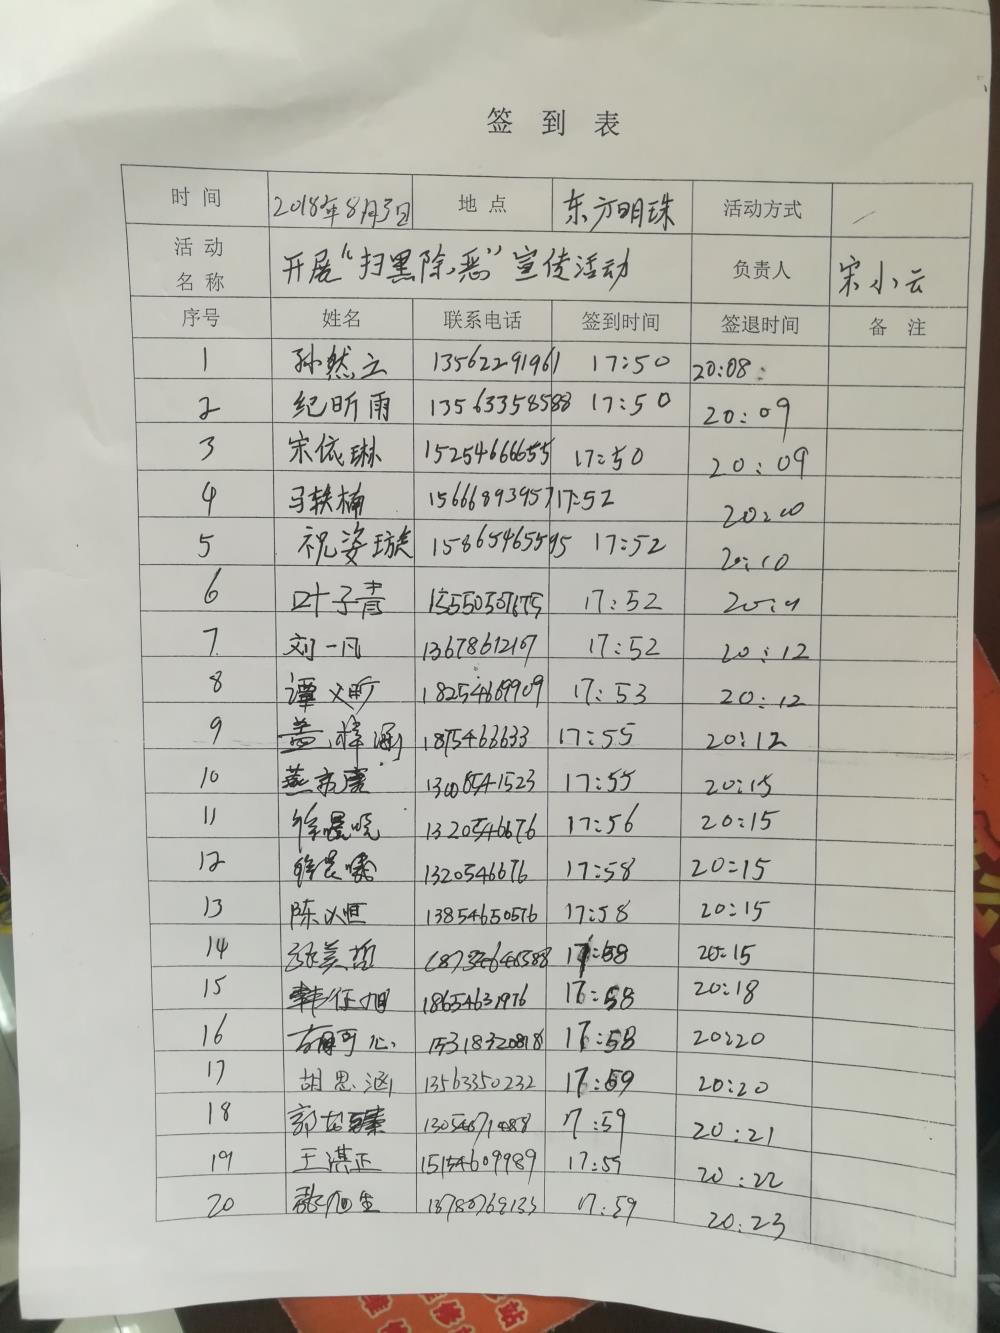 签到表
时间 2018年8月3日 地点 东方明珠 活动方式
活动名称 开展“扫黑除恶”宣传活动 负责人 宋小云
序号 姓名 联系电话 签到时间 签退时间 备注
1 孙然立 13562291961 17:50 20:08
2 纪昕雨 13563358588 17:50 20:09
3 宋依琳 15254666655 17:50 20:09
4 马轶楠 15666893957 17:52
5 祝姿璇 15865465595 17:52 20:10
6 叶子青 15550507675 17:52
7 刘一凡 13678612107 17:52 20:12
8 谭义昕 18254669909 17:53 20:12
9 盖梓涵 1875466633 17:55 20:12
10 13006541523 17:55 20:15
11 徐晨晓 1320546676 17:56 20:15
12 1320546676 17:58 20:15
13 陈义恒 13854650576 17:58 20:15
14 张美哲 17:58 20:15
15 韩任旭 18654631976 17:58 20:18
16 15318320818 17:58 20:20
17 胡思涵 13563350232 17:59 20:20
18 17:59 20:21
19 王淇正 15154609989 17:59 20:22
20 张旭生 17:59 20:23